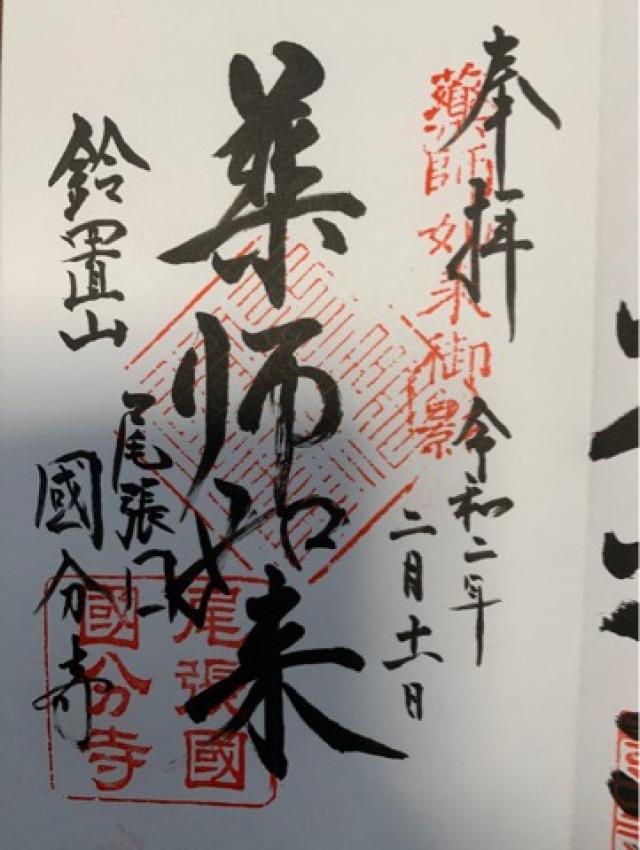 奉拝
藥師如来御影
令和二年
二月十一日
薬師如来
鈴置山
尾張
國分寺
尾張國
國分寺